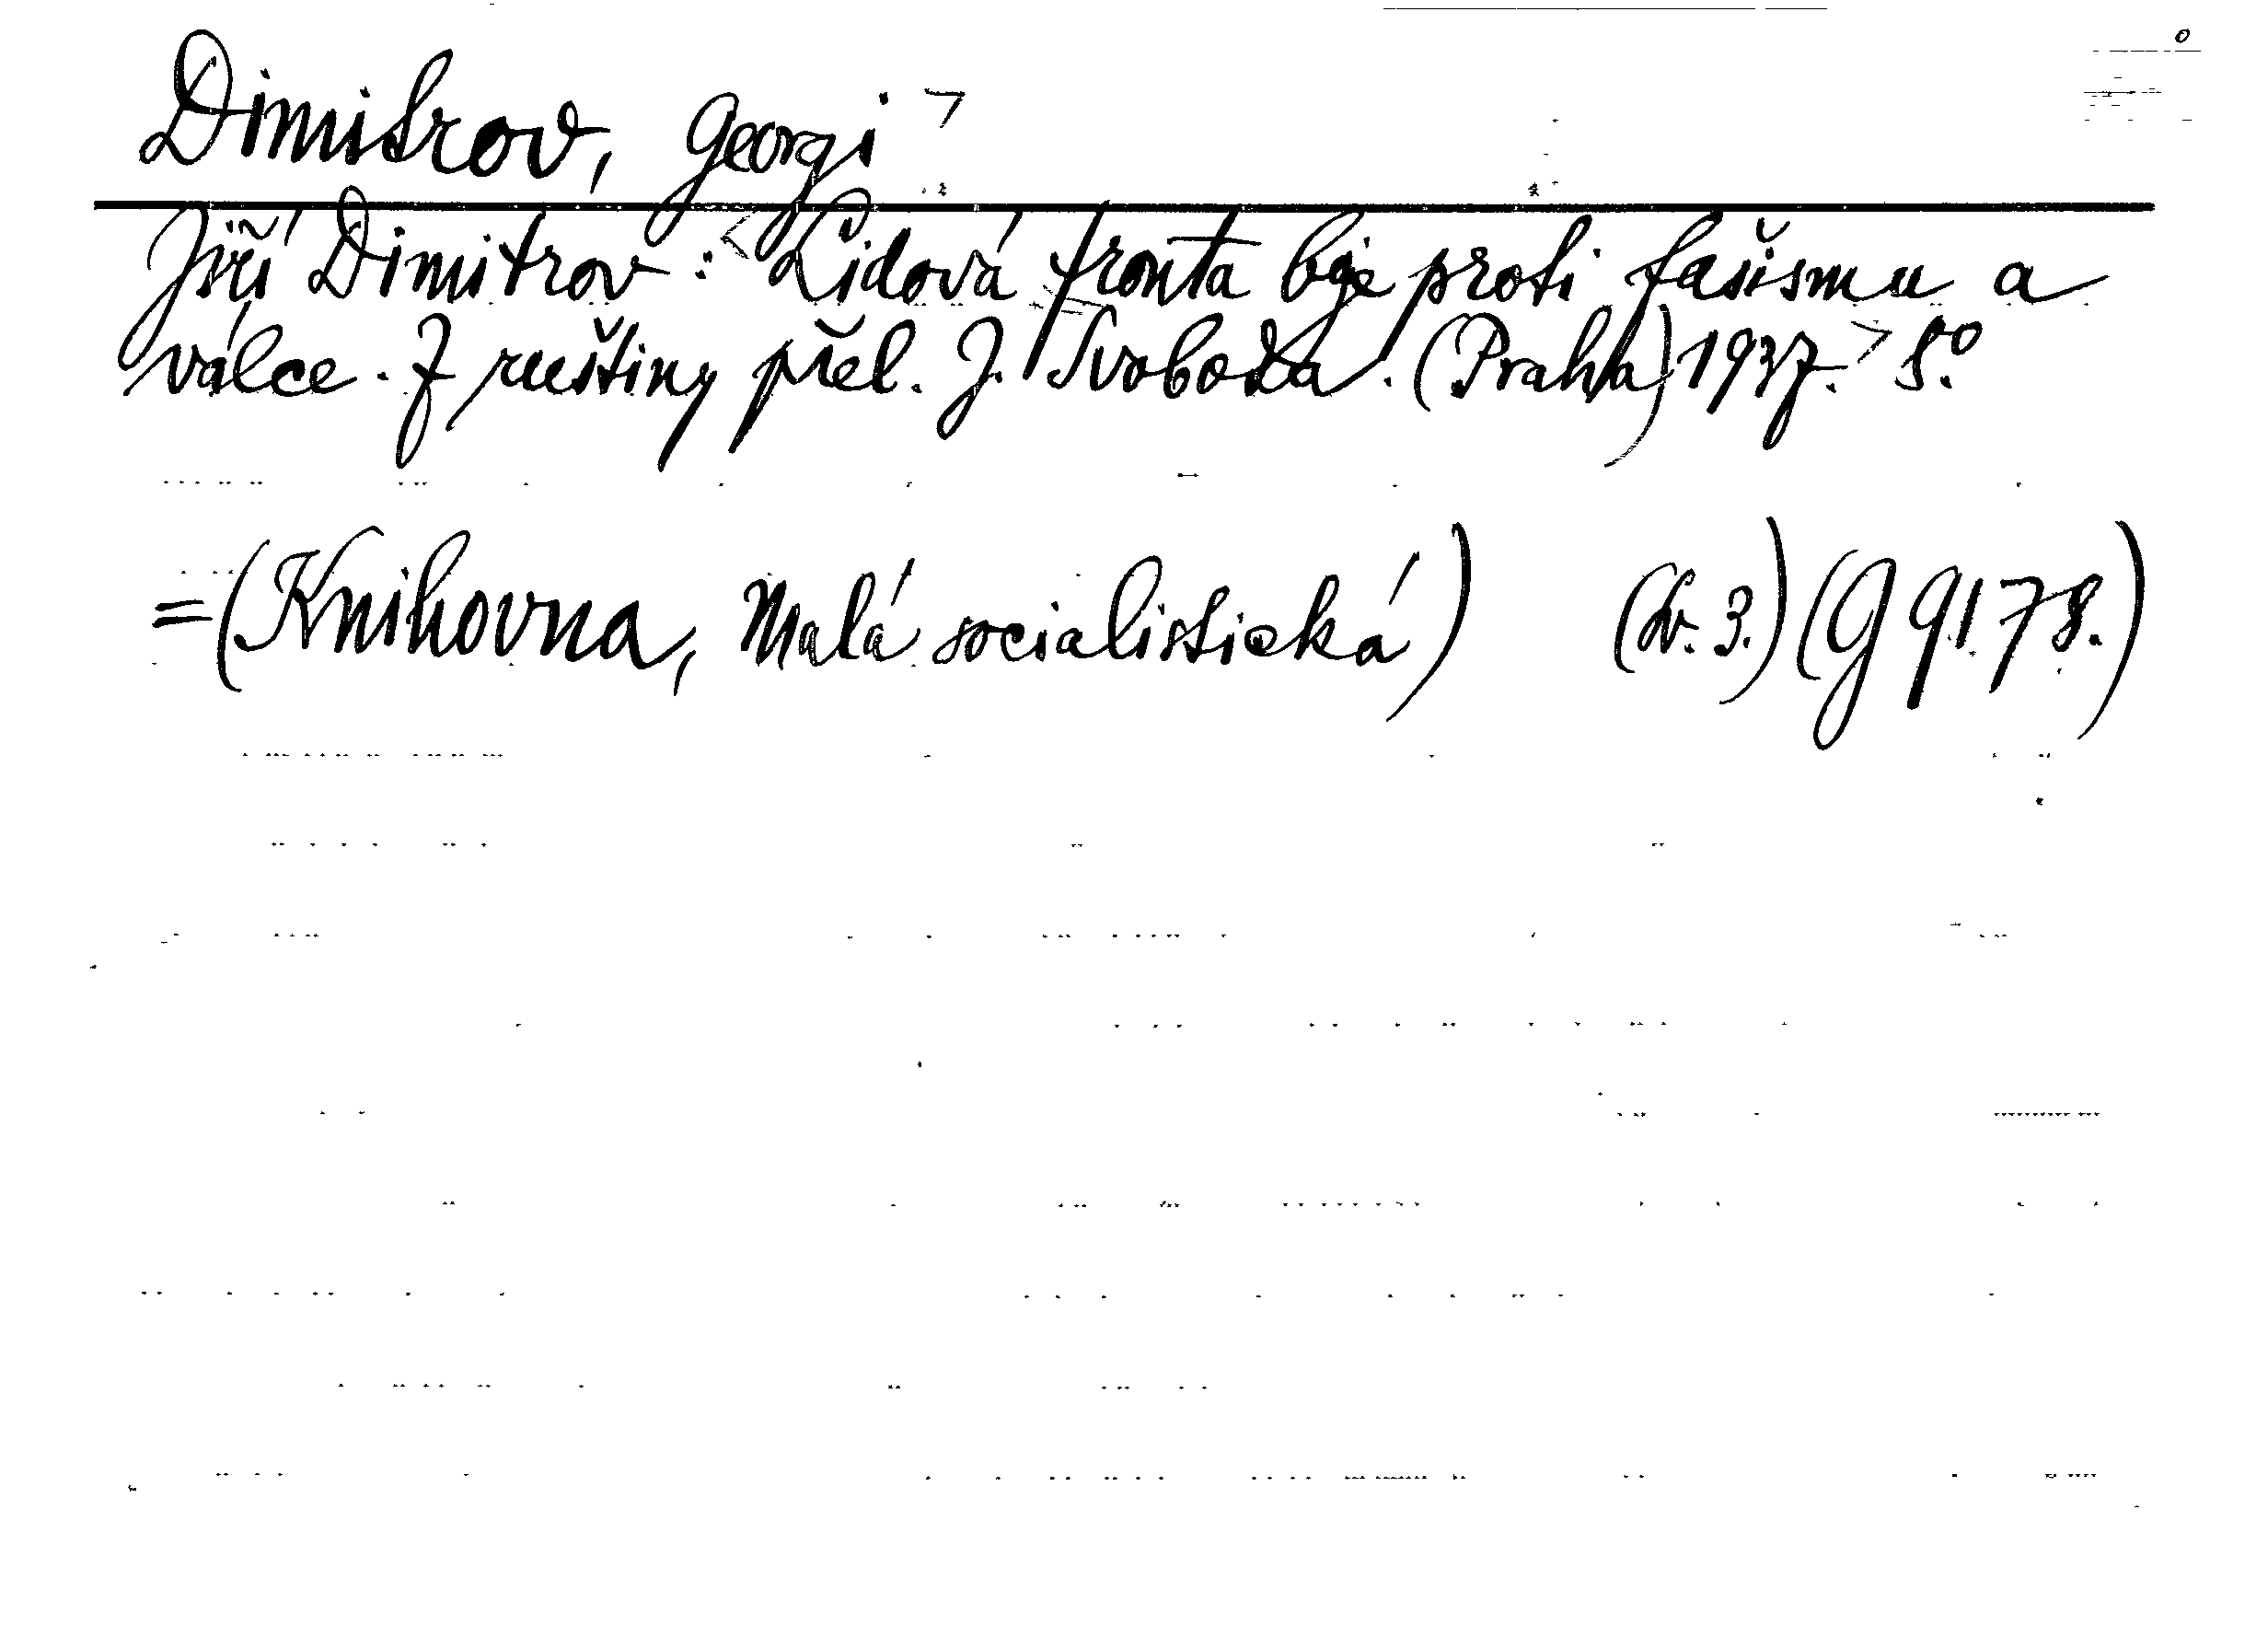 Dimitrov, Georgi
Jiří Dimitrov: Lidová fronta boje proti fašismu a
válce. Z ruštiny přel. J. Svoboda. (Praha) 1937. 8.°
=(Knihovna, Malá socialistická) (Sv. 3.) (G 9178.)